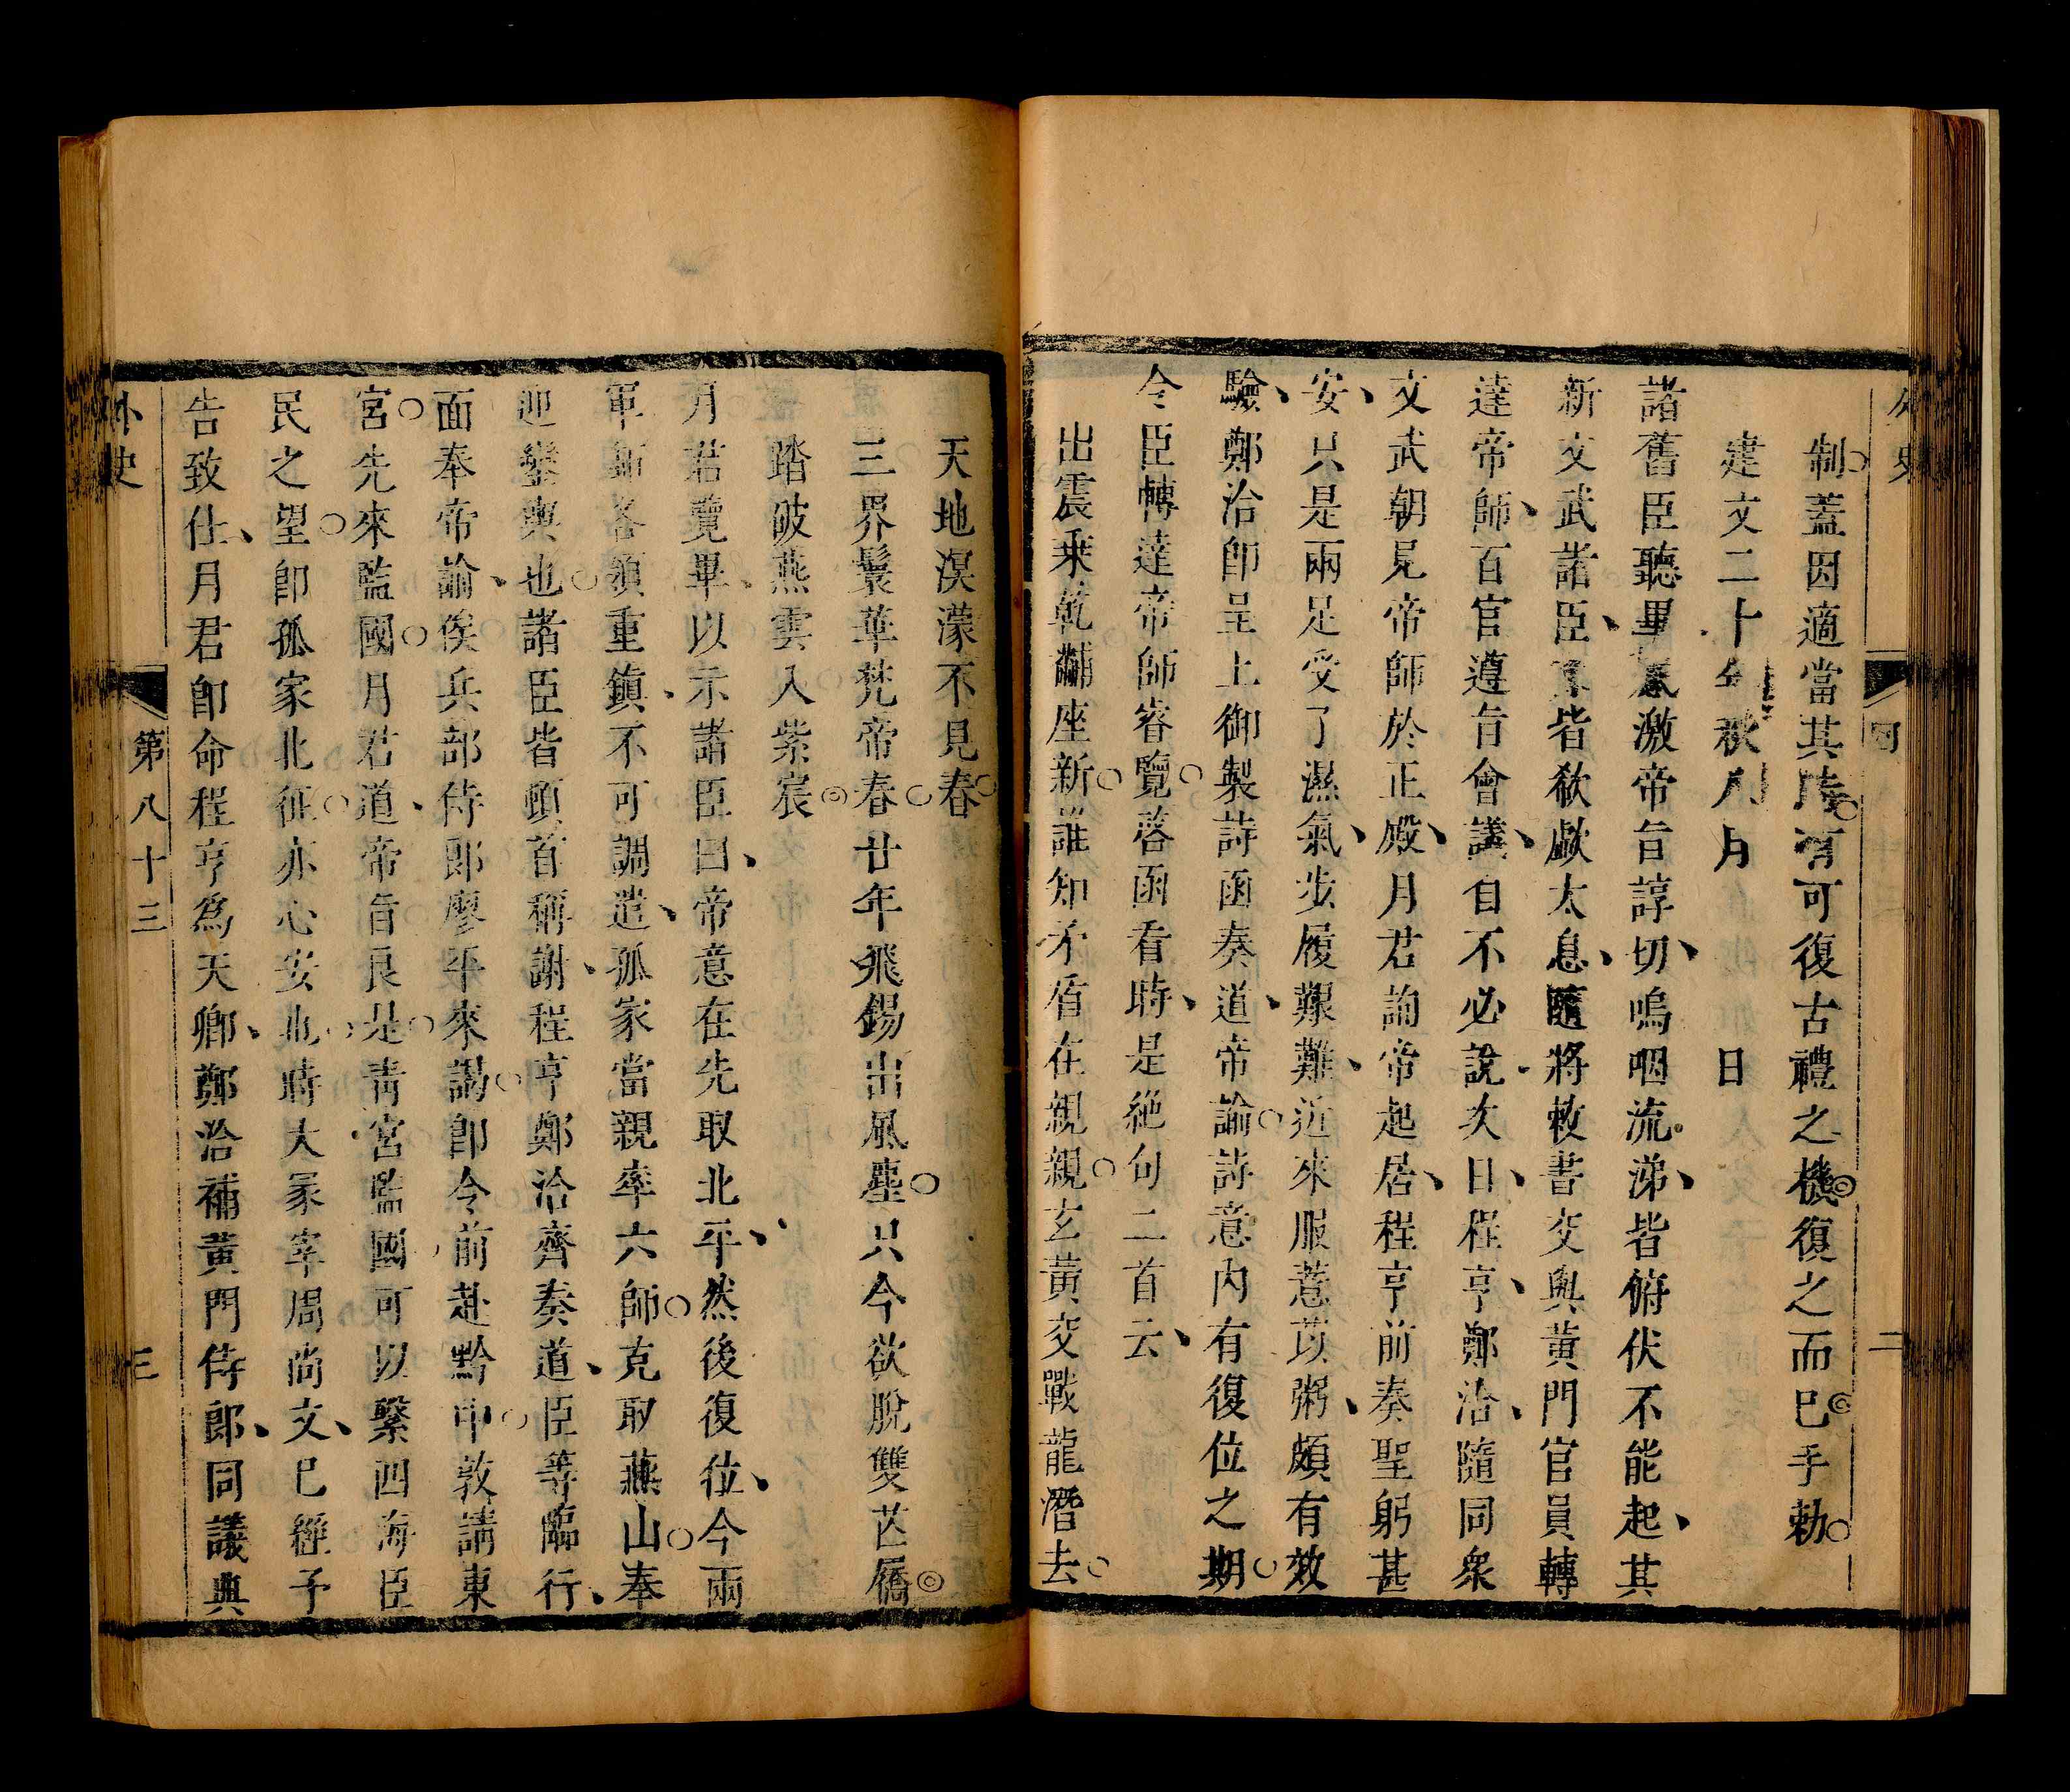 外史
回
二
制蓋因適當其時有可復古禮之機復之而已手勅
建文二十年秋八月　日
諸舊臣聽畢感激帝旨諄切嗚咽流涕皆俯伏不能起其
新文武諸臣亦皆欷歔太息隨將敕書交與黃門官員轉
達帝師百官遵旨會議自不必說次日程亨鄭洽隨同衆
文武朝見帝師於正殿月君詢帝起居程亨前奏聖躬甚
安只是兩足受了濕氣步履艱難近來服薏苡粥頗有效
驗鄭洽即呈上御製詩函奏道帝諭詩意内有復位之期
令臣轉達帝師睿覽啓函看時是絶句二首云
出震乗乾黼座新誰知矛盾在親親玄黃交戰龍潛去
天地溟濛不見春
三界鬟華梵帝春廿年飛錫出風塵只今欲脫雙芒屩
踏破燕雲入紫宸
月君覽畢以示諸臣曰帝意在先取北平然後復位今兩
軍師各領重鎮不可調遣孤家當親率六師克取燕山奉
迎鑾輿也諸臣皆頓首稱謝程亨鄭洽齊奏道臣等臨行
面奉帝諭俟兵部侍郎廖平來謁即令前赴黔中敦請東
宮先來監國月君道帝旨良是青宮監國可以繫四海臣
民之望即孤家北征亦心安也時大冡宰周尚文已經予
告致仕月君即命程亨爲天卿鄭洽補黃門侍郎同議典
外史
第八十三
三